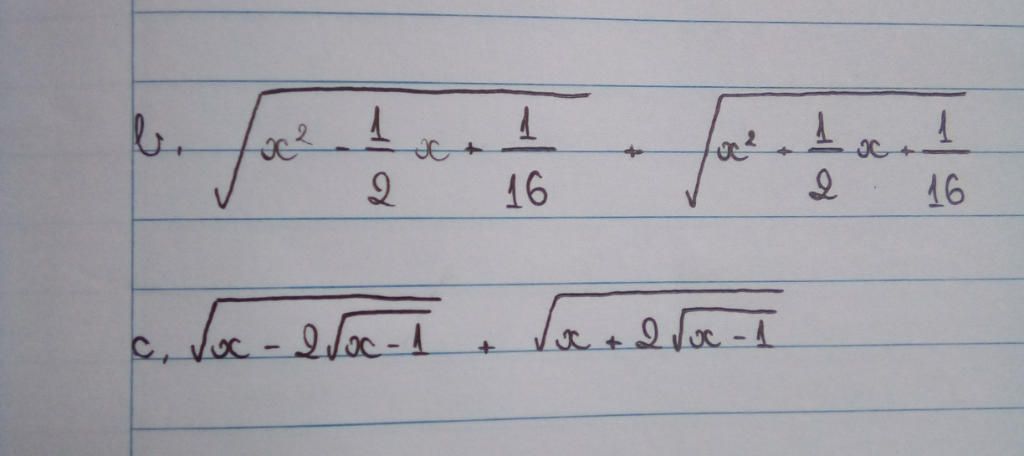 b. √(x² - 1/2 x + 1/16) + √(x² + 1/2 x + 1/16)
c, √(x - 2√(x - 1)) + √(x + 2√(x - 1))